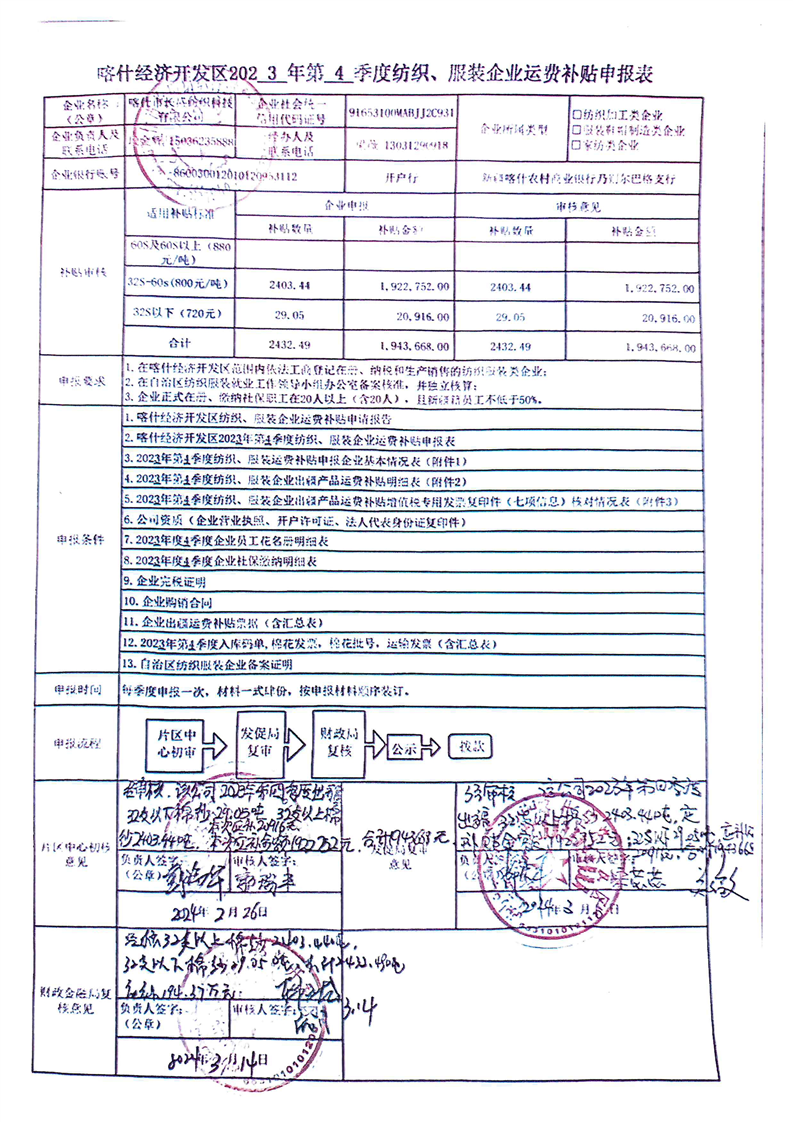 喀什经济开发区2023年第4季度纺织、服装企业运费补贴申报表
企业名称（公章） 喀什市 纺织科技有限公司 企业社会统一信用代码证号 91653100MABJJ2C931 企业所属类型 □纺织加工类企业
□服装鞋帽制造类企业
□家纺类企业
企业负责人及联系电话 15036235888 经办人及联系电话 13031290918
企业银行账号 860030012010120953112 开户行 新疆喀什农村商业银行乃则尔巴格支行
补贴审核 适用补贴标准 企业申报 审核意见
补贴数量 补贴金额 补贴数量 补贴金额
60S及60S以上（880元/吨）
32S-60s(800元/吨) 2403.44 1,922,752.00 2403.44 1,922,752.00
32S以下（720元） 29.05 20,916.00 29.05 20,916.00
合计 2432.49 1,943,668.00 2432.49 1,943,668.00
申报要求
1.在喀什经济开发区范围内依法工商登记在册、纳税和生产销售的纺织服装类企业;
2.在自治区纺织服装就业工作领导小组办公室备案核准，并独立核算;
3.企业正式在册、缴纳社保职工在20人以上（含20人），且新疆籍员工不低于50%。
申报条件
1.喀什经济开发区纺织、服装企业运费补贴申请报告
2.喀什经济开发区2023年第4季度纺织、服装企业运费补贴申报表
3.2023年第4季度纺织、服装运费补贴申报企业基本情况表（附件1）
4.2023年第4季度纺织、服装企业出疆产品运费补贴明细表（附件2）
5.2023年第4季度纺织、服装企业出疆产品运费补贴增值税专用发票复印件（七项信息）核对情况表（附件3）
6.公司资质（企业营业执照、开户许可证、法人代表身份证复印件）
7.2023年度4季度企业员工花名册明细表
8.2023年度4季度企业社保缴纳明细表
9.企业完税证明
10.企业购销合同
11.企业出疆运费补贴票据（含汇总表）
12.2023年第4季度入库码单,棉花发票，棉花批号，运输发票（含汇总表）
13.自治区纺织服装企业备案证明
申报时间 每季度申报一次，材料一式肆份，按申报材料顺序装订。
申报流程 片区中心初审 发促局复审 财政局复核 公示 拨款
片区中心初核意见
经审核，该公司2023年第四季度出疆
32支以下棉纱29.05吨，32支以上棉
本次应补20916元
纱2403.440吨，本次应补贴额1922752元，合计1943668元。
负责人签字：（公章） 审核人签字：
2024年2月26日
发促局复审意见
经审核 该公司2023年第四季度
出疆32支以上棉纱2403.440吨，定
负责人签字：（公章） 审核人签字：
2024年3月 日
财政金融局复核意见
经核32支以上棉纱2403.440吨，
32支以下棉纱29.05吨，共计2432.490吨
194.37万元
负责人签字：（公章） 审核人签字：
3.14
2024年3月14日